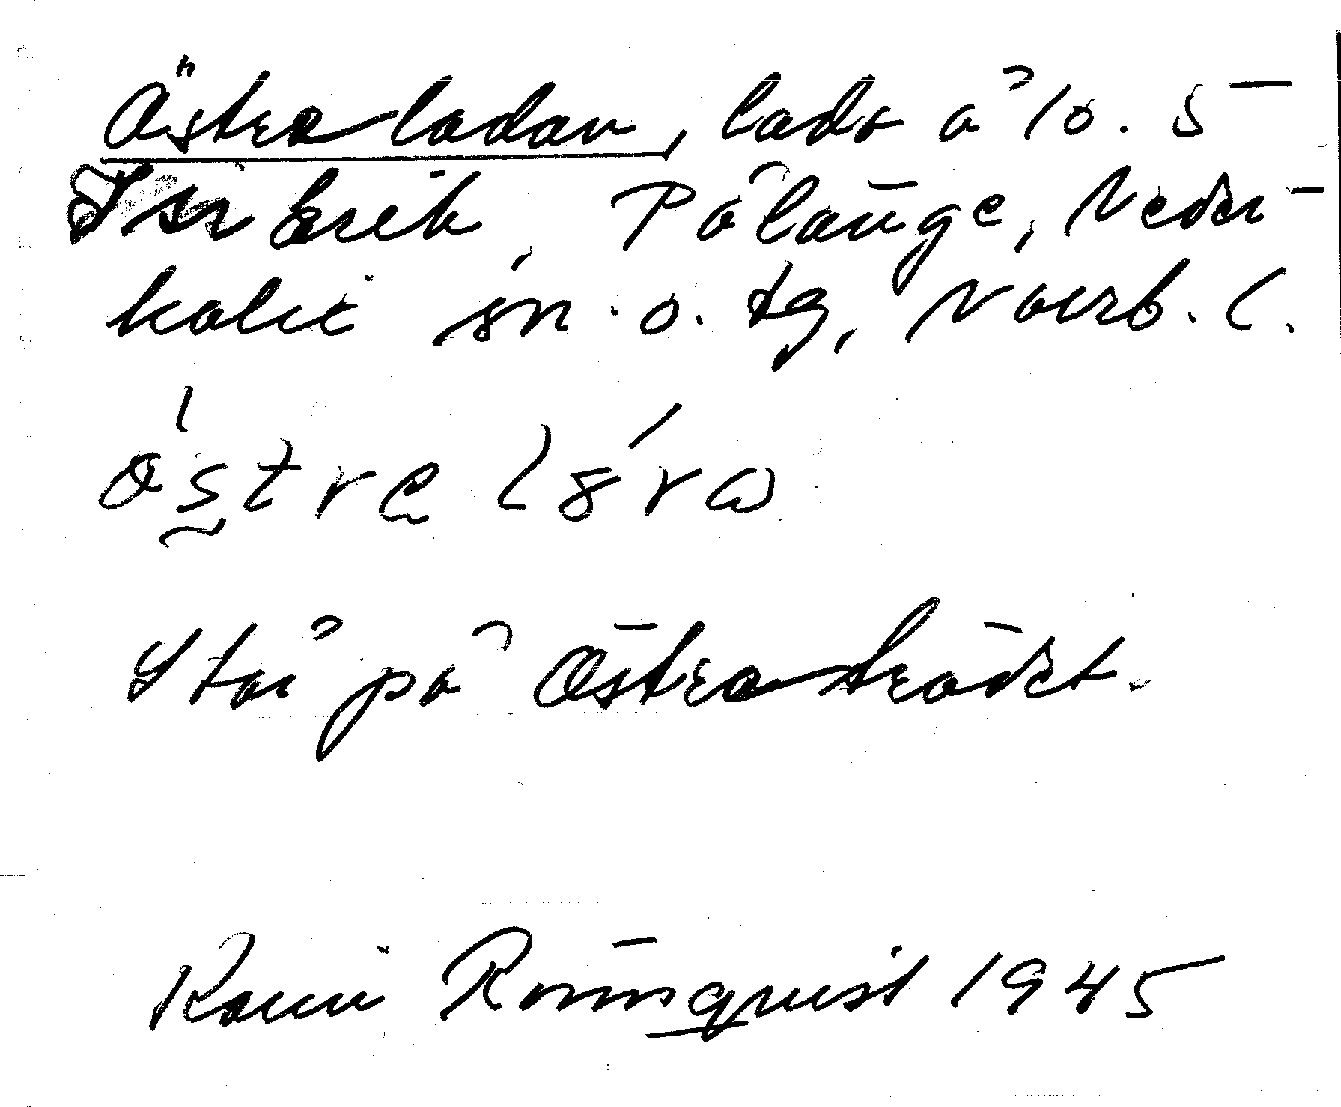 Östra ladan, lada å lo. 5
Per Erik, Pålänge, Neder-
kalix sn. o. tg, Norrb. l.
östrɐ lɑ́ra
Står på Östra trädet.
Karin Rönnqvist 1945